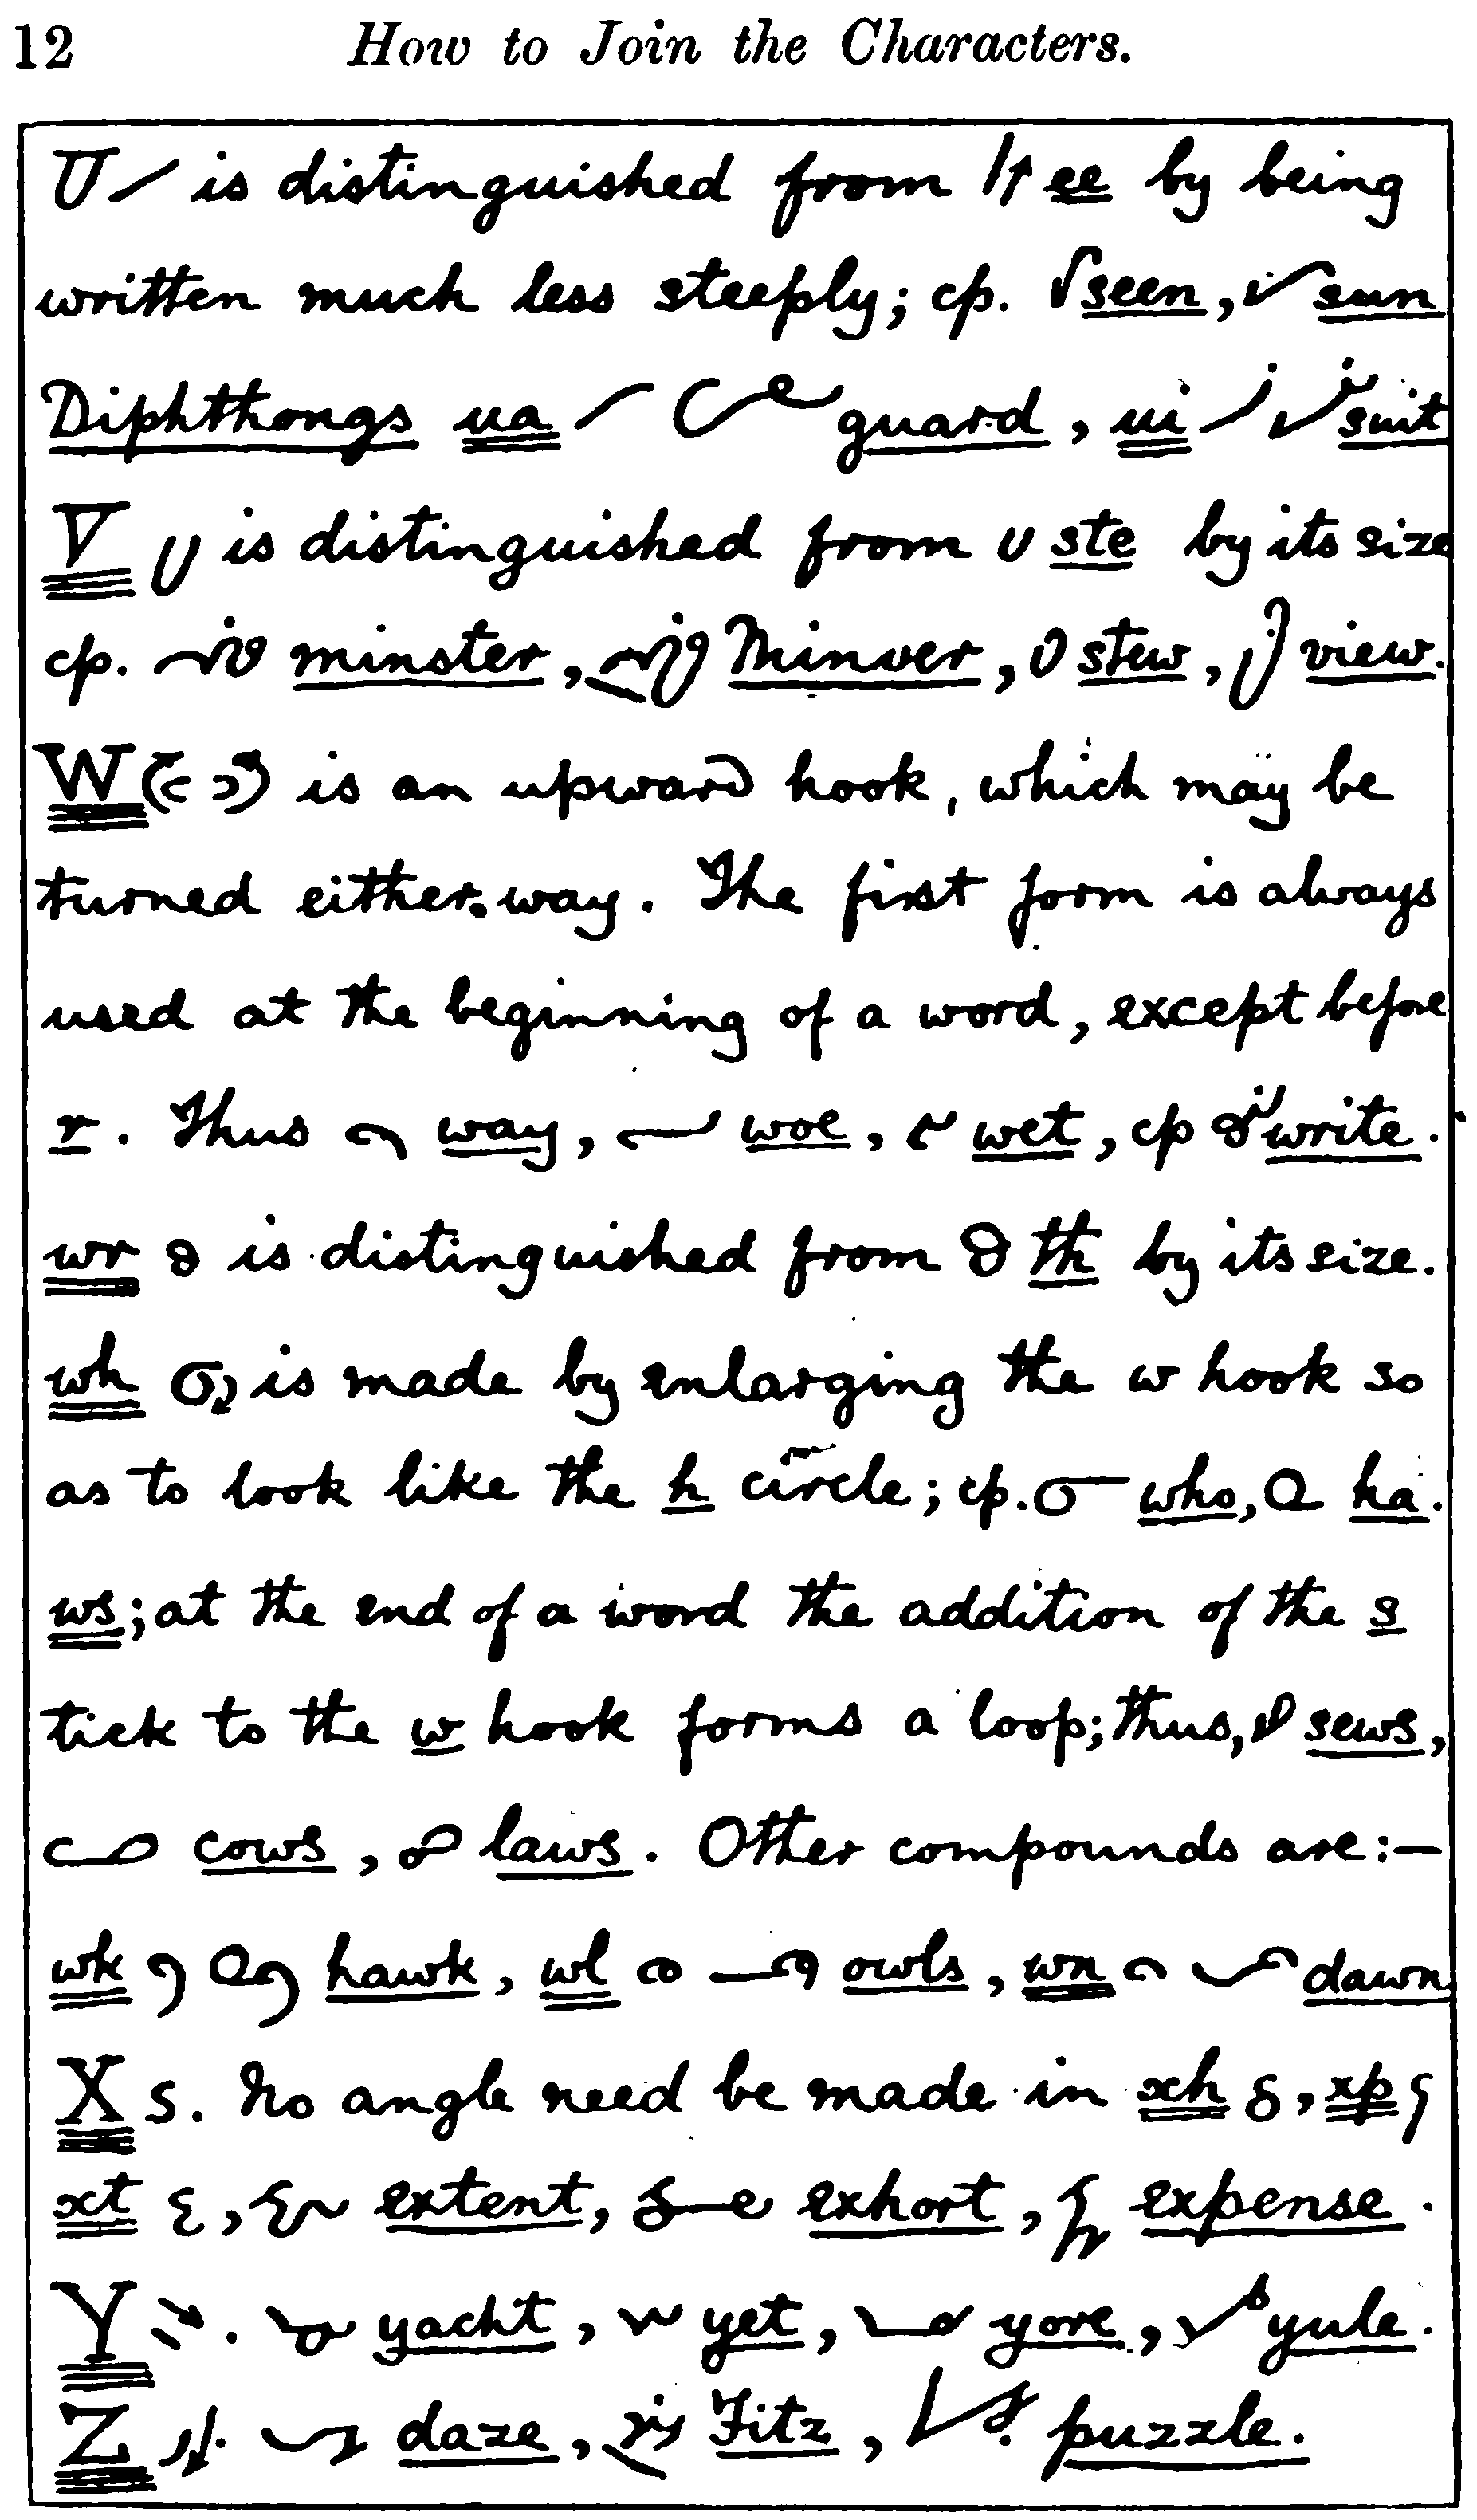 12 How to Join the Characters.
U is distinguished from ee by being
written much less steeply; cp. seen, sun
Diphthongs ua guard, ui suit
V is distinguished from ste by its size
cp. minster, Minver, stew, view.
W ( ) is an upward hook, which may be
turned either way. The first form is always
used at the beginning of a word, except before
r. Thus way, woe, wet, cp write.
wr is distinguished from th by its size.
wh is made by enlarging the w hook so
as to look like the h circle; cp. who, ha.
ws; at the end of a word the addition of the s
tick to the w hook forms a loop; thus, sews,
cows, laws. Other compounds are:—
wk hawk, wl owls, wn dawn
X. No angle need be made in xh, xp
xt, extent, exhort, expense.
Y. yacht, yet, yore, yule.
Z. daze, Fitz, puzzle.